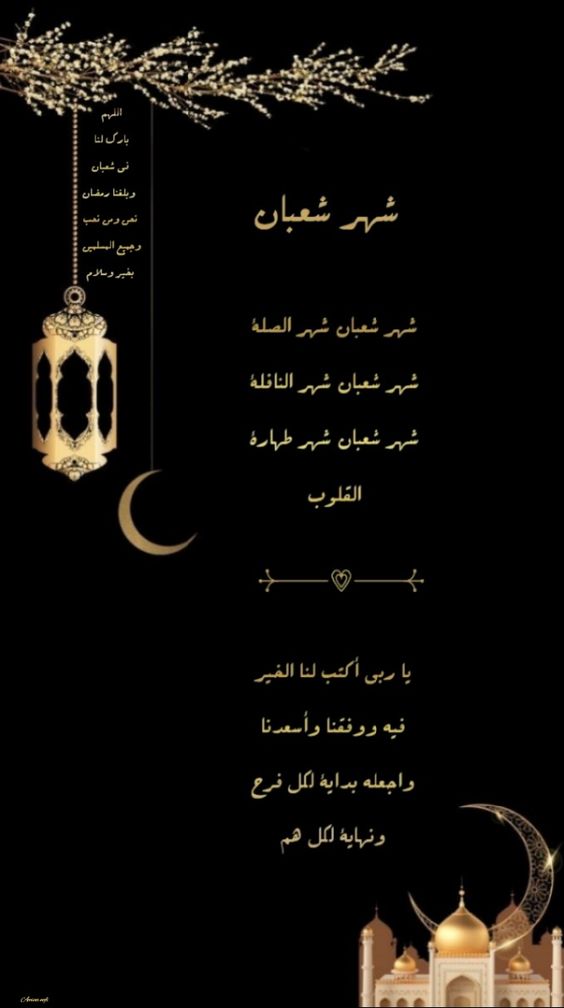 شهر شعبان
شهر شعبان شهر الصلة
شهر شعبان شهر النافلة
شهر شعبان شهر طهارة
القلوب
يا ربى أكتب لنا الخير
فيه ووفقنا وأسعدنا
واجعله بداية لكل فرح
ونهاية لكل هم
اللهم
بارك لنا
فى شعبان
وبلغنا رمضان
نحن ومن نحب
وجميع المسلمين
بخير وسلام